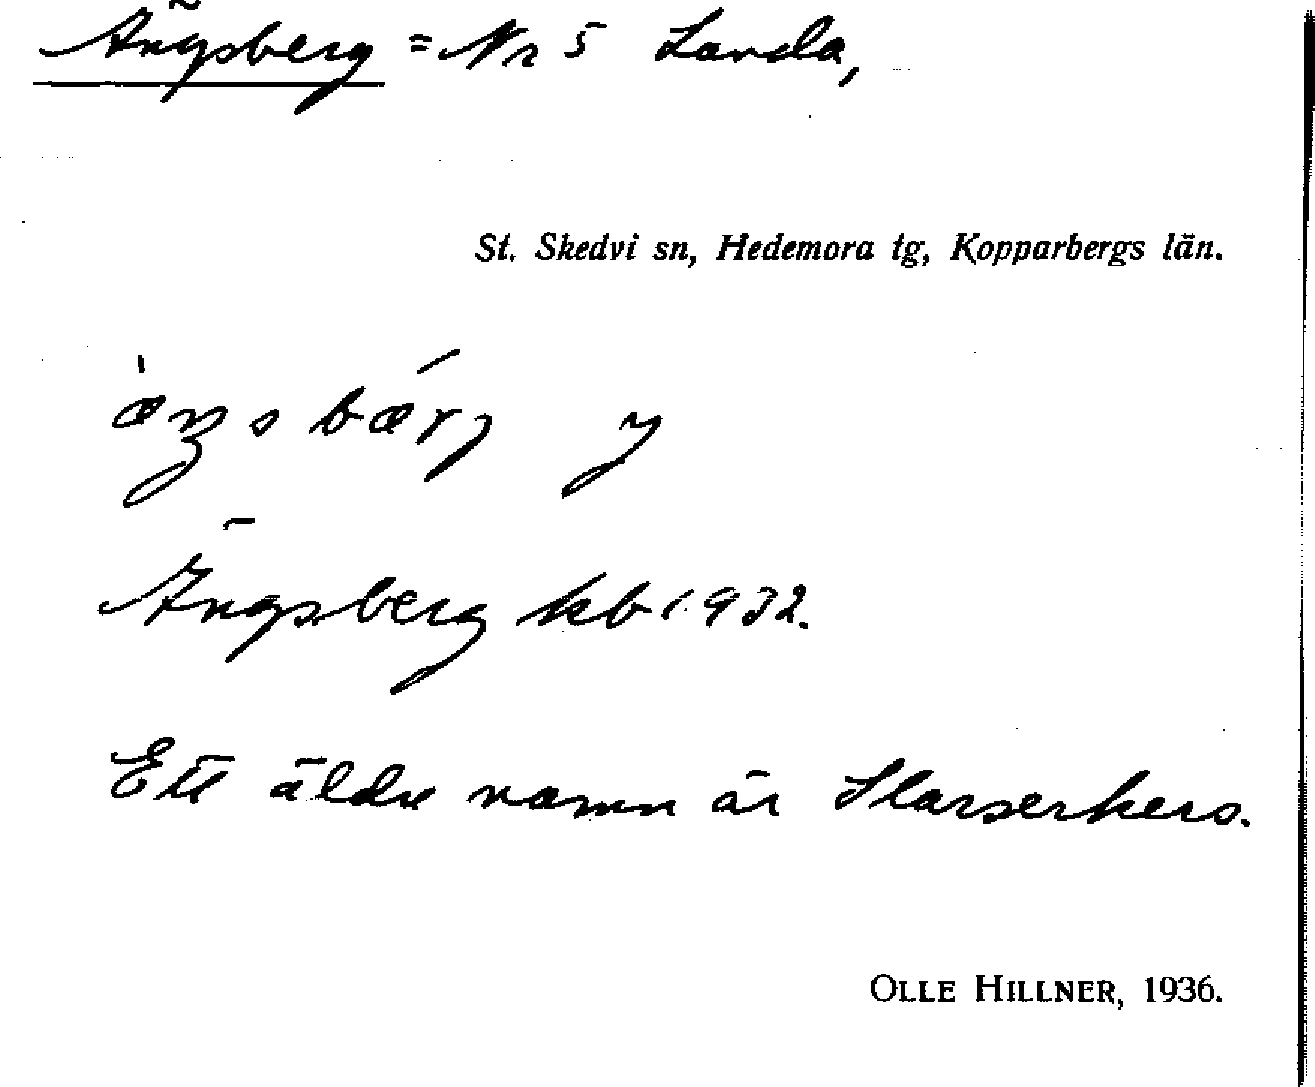 Ängsberg = Nr 5 Landa,
St. Skedvi sn, Hedemora tg, Kopparbergs län.
Ängsberg kb 1932.
Ett äldre namn är
OLLE HILLNER, 1936.